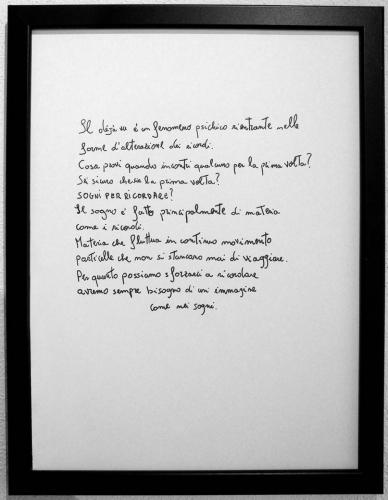 Il déjà vu è un fenomeno psichico rientrante nelle
forme d'alterazione dei ricordi.
Cosa provi quando incontri qualcuno per la prima volta?
Sei sicuro che sia la prima volta?
SOGNI PER RICORDARE?
Il sogno è fatto principalmente di materia
come i ricordi.
Materia che fluttua in continuo movimento
particelle che non si stancano mai di viaggiare.
Per quanto possiamo sforzarci a ricordare
avremo sempre bisogno di un immagine
come nei sogni.